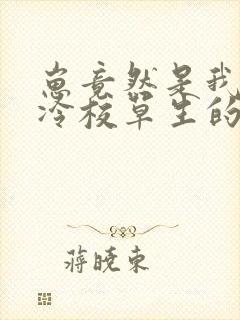 崽竟然是我
冷校草生的
蒋晓东